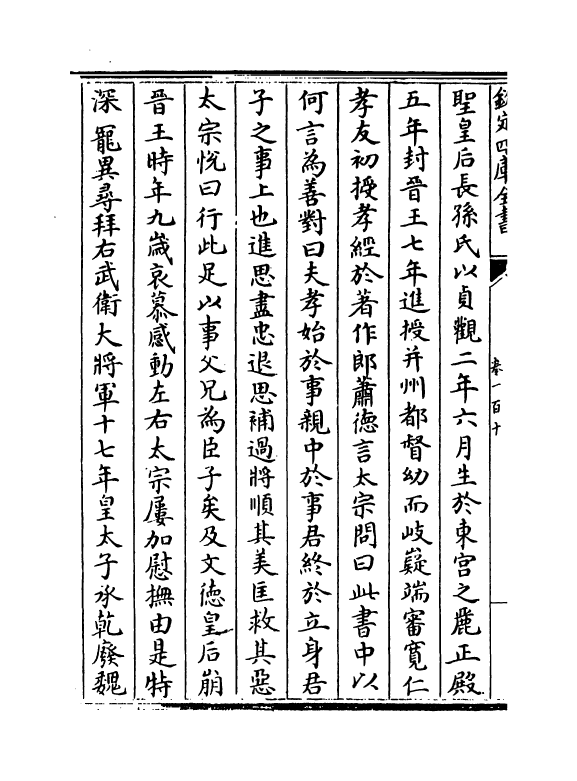 欽定四庫全書
卷一百十
聖皇后長孫氏以貞觀二年六月生於東宫之麗正殿
五年封晉王七年進授并州都督幼而岐嶷端審寛仁
孝友初授孝經於著作郎蕭徳言太宗問曰此書中以
何言為善對曰夫孝始於事親中於事君終於立身君
子之事上也進思盡忠退思補過將順其美匡救其惡
太宗悦曰行此足以事父兄為臣子矣及文徳皇后崩
晉王時年九歳哀慕感動左右太宗屢加慰撫由是特
深寵異尋拜右武衛大將軍十七年皇太子承乾廢魏